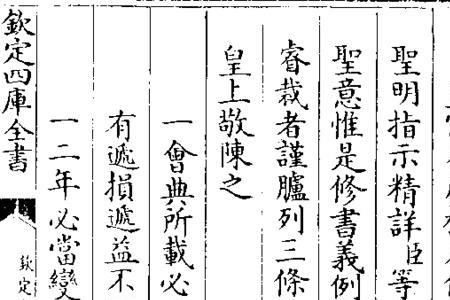 聖明指示精詳臣等
聖意惟是修書義例
睿裁者謹臚列三條
皇上敬陳之
一會典所載必
有遞損遞益不
一二年必當變
欽定四庫全書
欽定